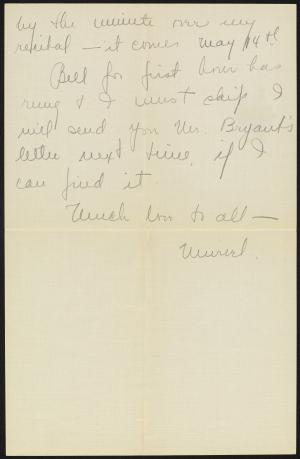 by the minute over my
recital – it comes May 14th.
Bell for first hour has
rung & I must skip. I
will send you Mr. Bryant's
letter next time, if I
can find it.
Much love to all –
Muriel.